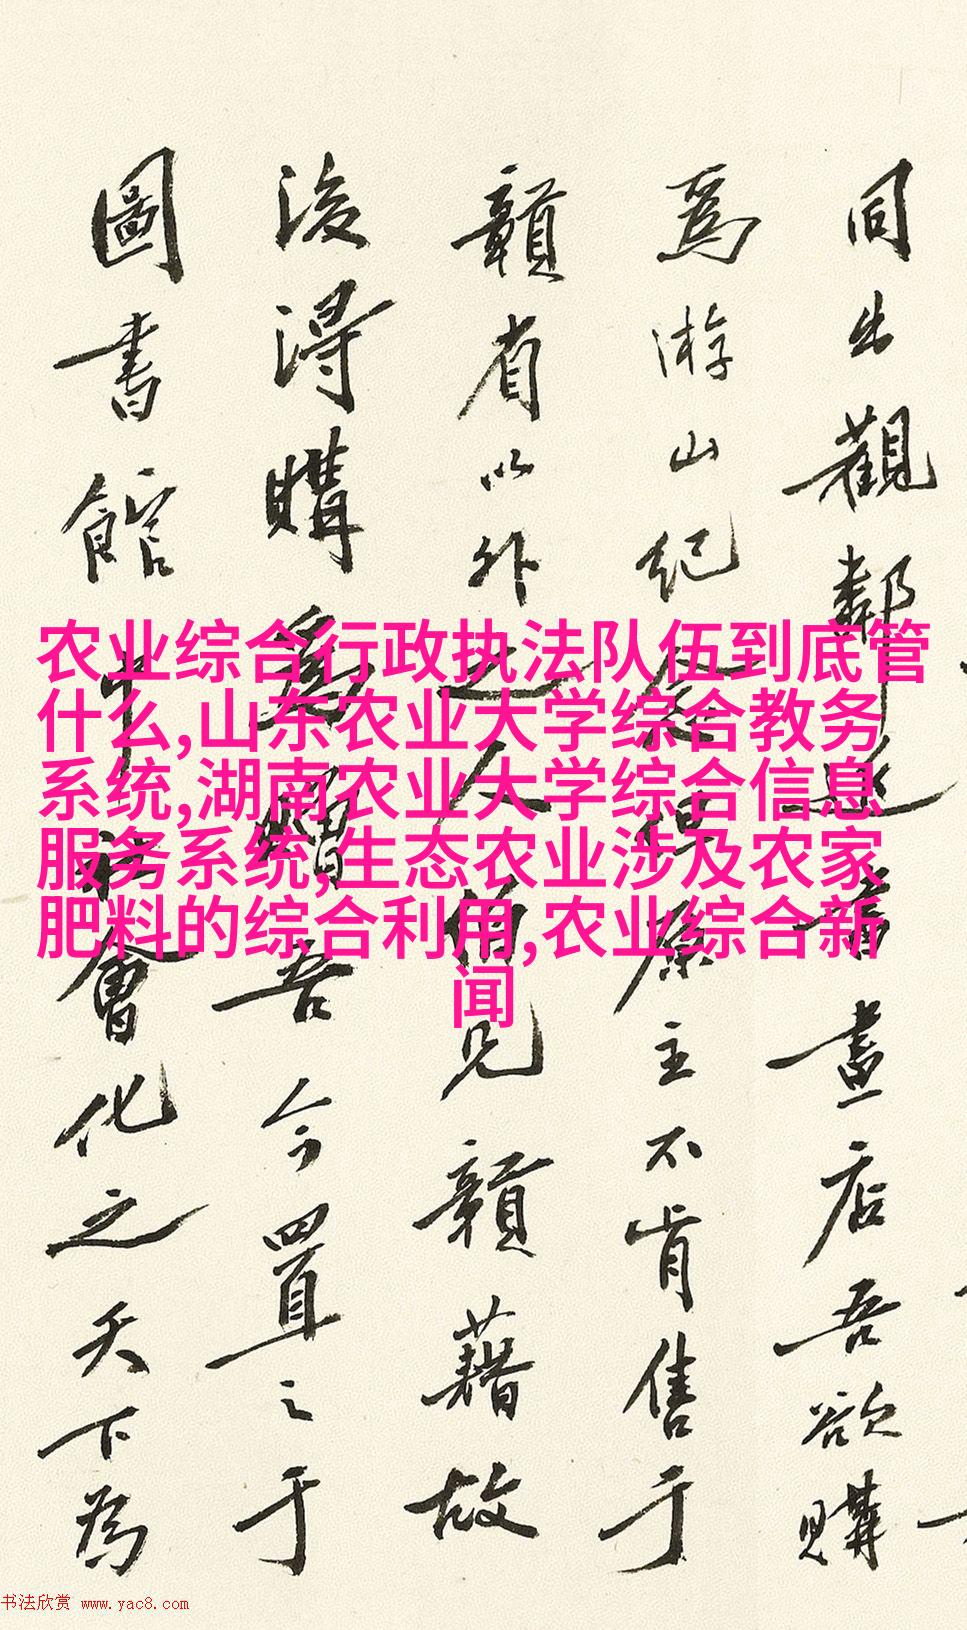 同出觀鄰 畫店吾欲購
爲游山紀念 主不肯售于
贛省以外之人 見贛藉故
後得購爲贈吾今置之于
圖書館 會化之天下為
农业综合行政执法队伍到底管
什么,山东农业大学综合教务
系统,湖南农业大学综合信息
服务系统,生态农业涉及农家
肥料的综合利用,农业综合新
闻
书法欣赏 www.yac8.com